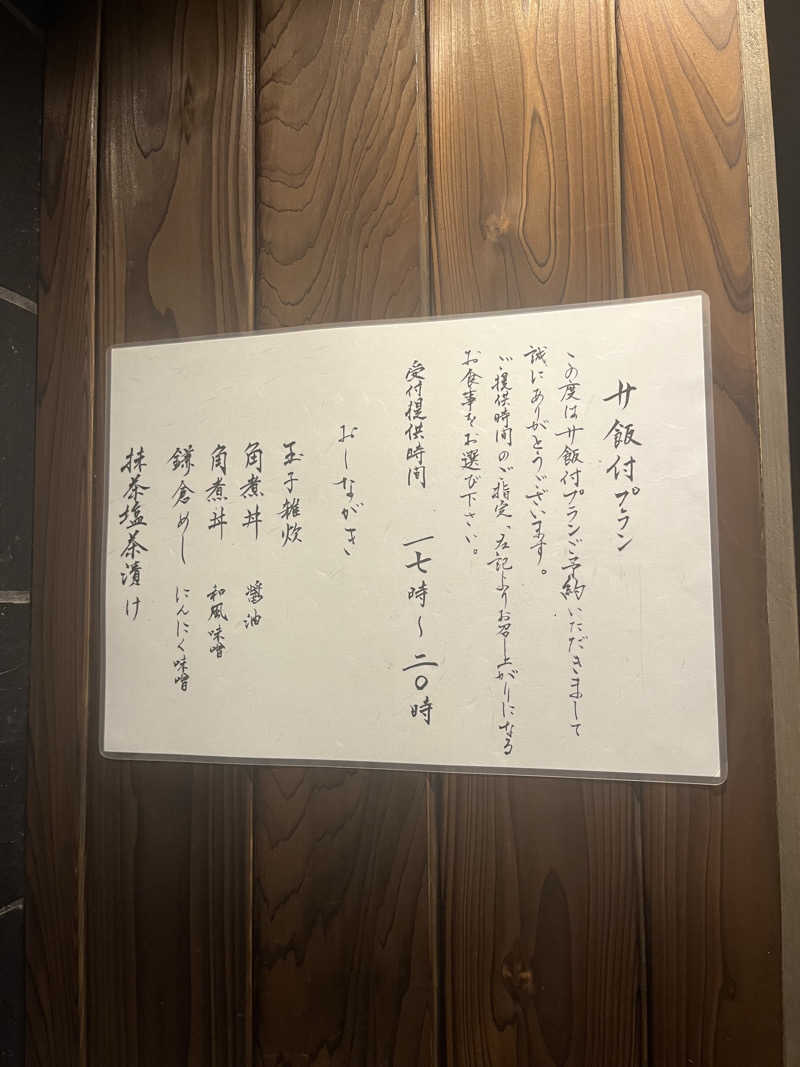 サ飯付プラン
この度はサ飯付プランご予約いただきまして
誠にありがとうございます。
ご提供時間のご指定、左記よりお召し上がりになる
お食事をお選び下さい。
受付提供時間 一七時～二〇時
おしながき
玉子雑炊
角煮丼 醤油
角煮丼 和風味噌
鎌倉めし にんにく味噌
抹茶塩茶漬け